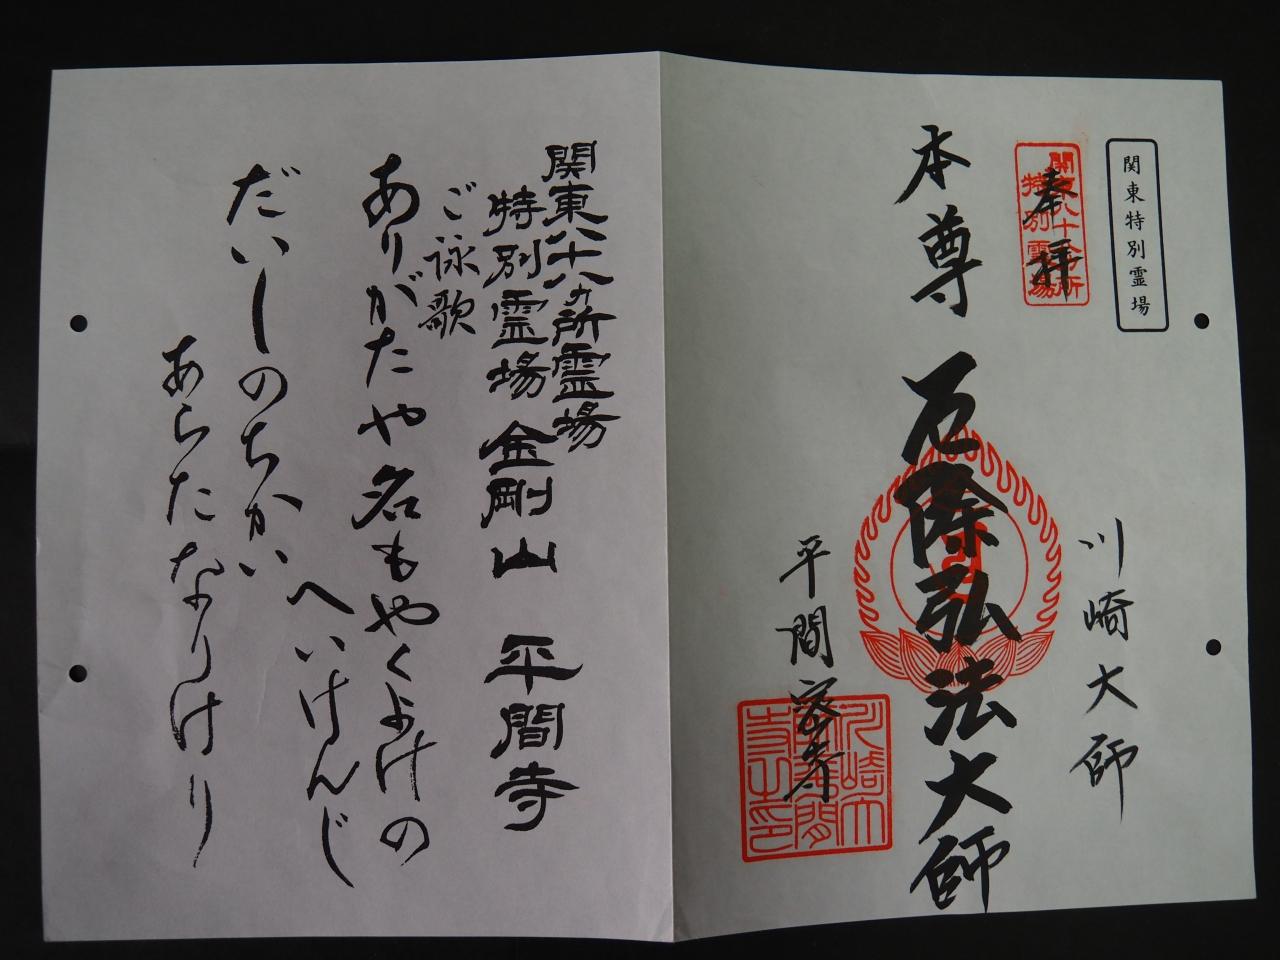 関東特別霊場
関東八十八ヵ所
特別霊場
奉拝
川崎大師
本尊 厄除弘法大師
平間寺
関東八十八ヵ所霊場
特別霊場 金剛山 平間寺
ご詠歌
ありがたや名もやくよけの
へいけんじ
だいしのちかい
あらたなりけり